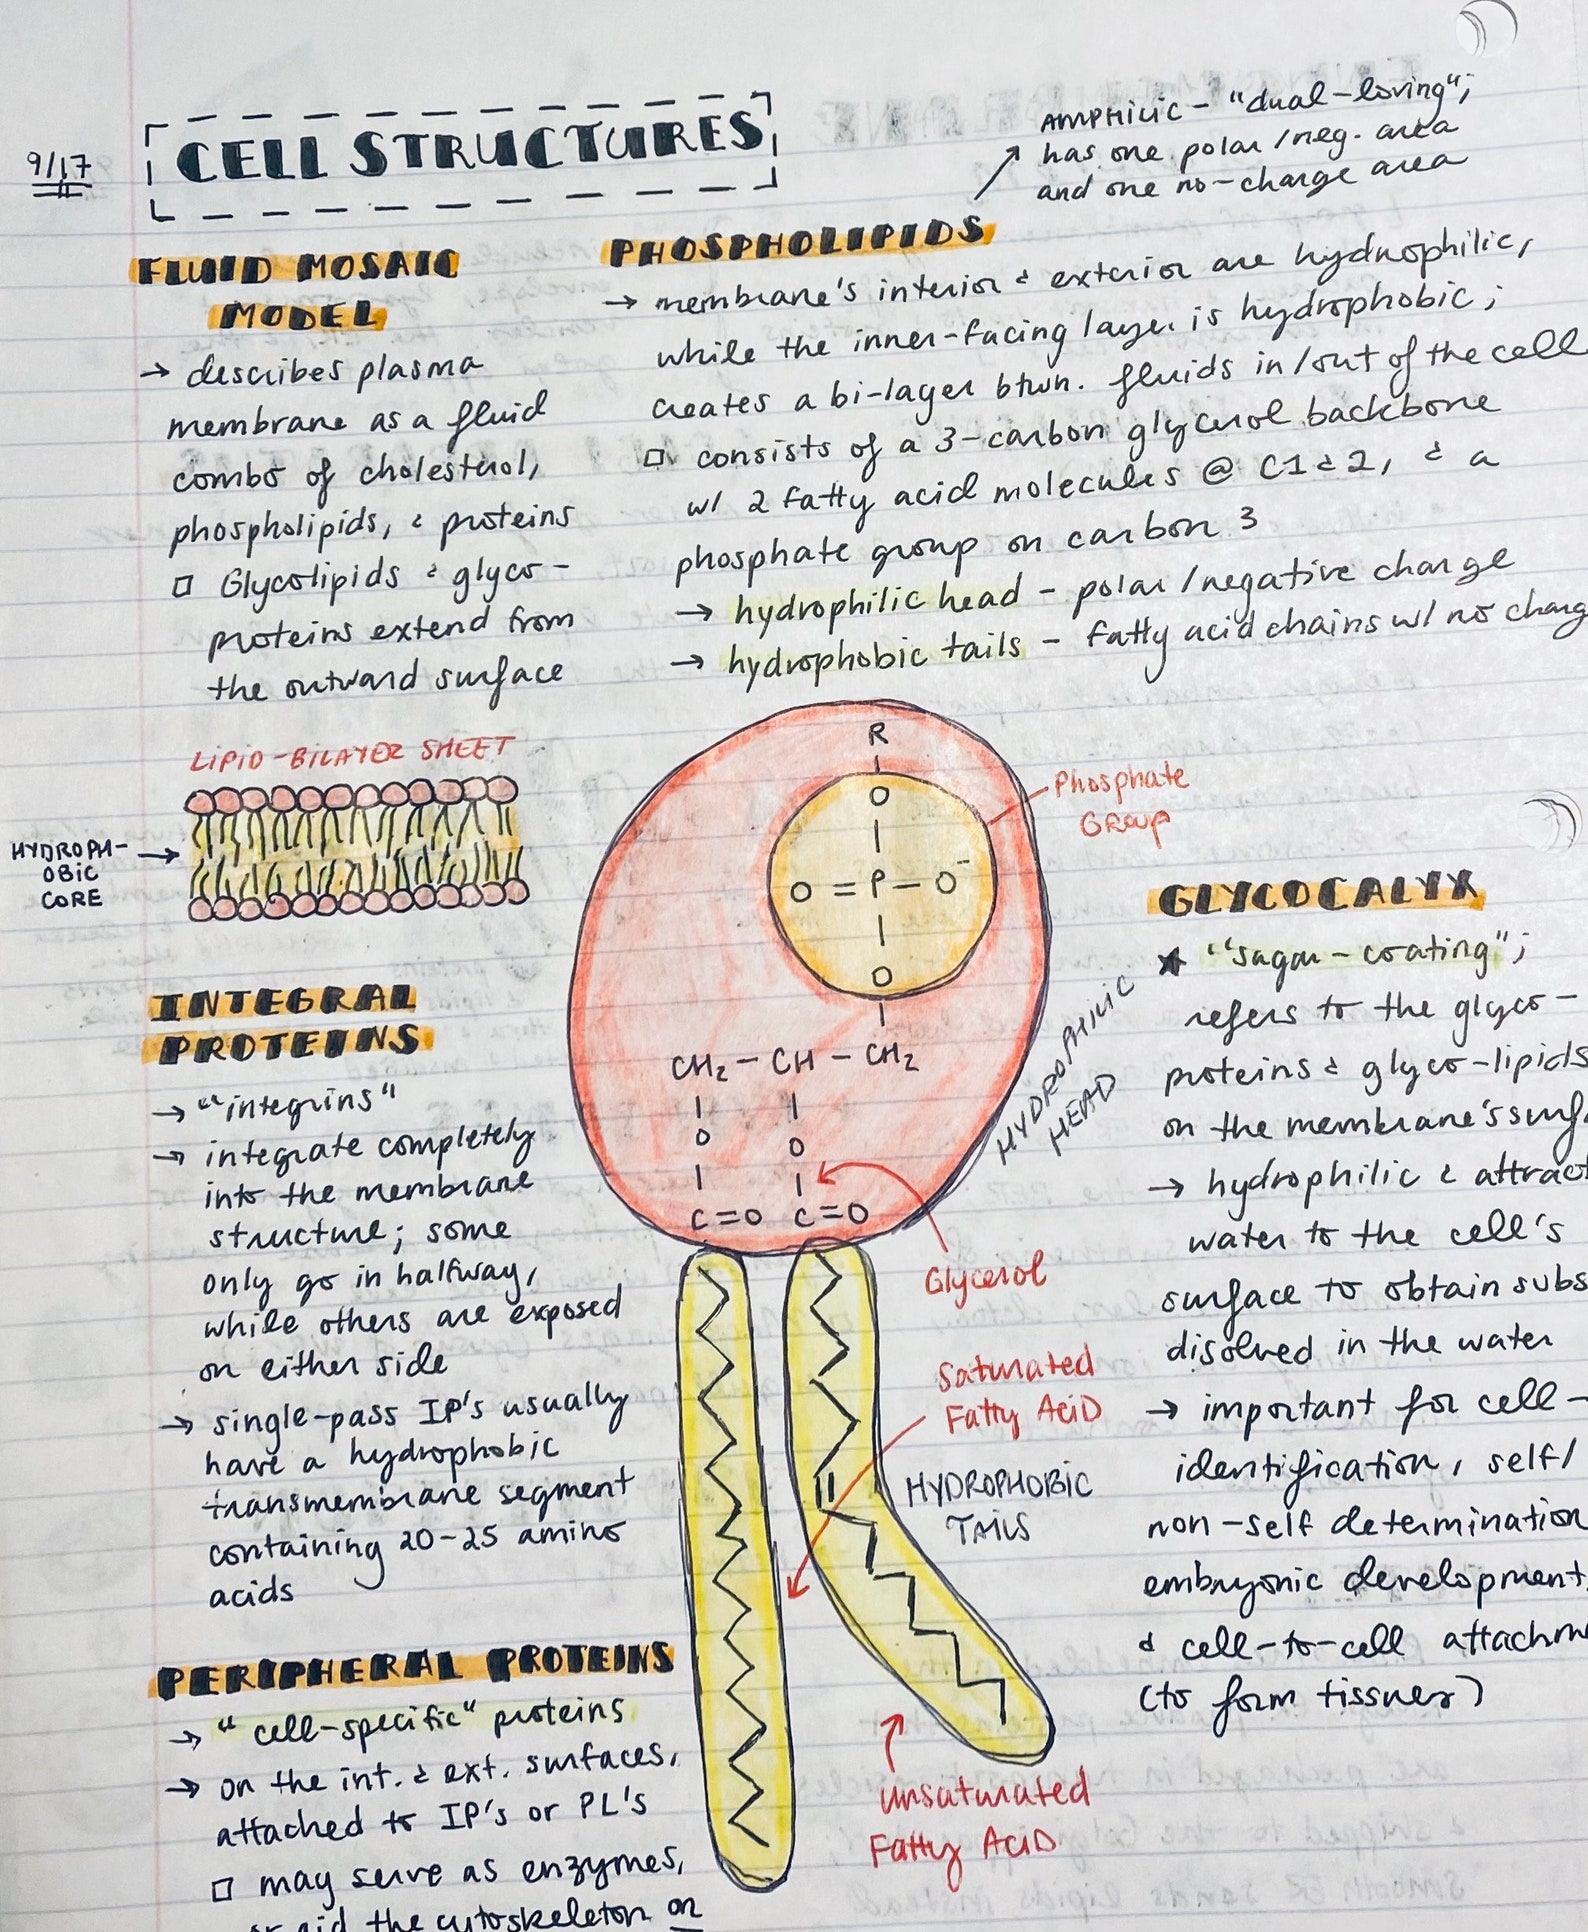 9/17
CELL STRUCTURES
AMPHILIC - "dual-loving";
has one polar/neg. area
and one no-charge area
FLUID MOSAIC
MODEL
→ describes plasma
membrane as a fluid
combo of cholesterol,
phospholipids, & proteins
□ Glycolipids & glyco-
proteins extend from
the outward surface
PHOSPHOLIPIDS
→ membrane's interior & exterior are hydrophilic,
while the inner-facing layer is hydrophobic;
creates a bi-layer btwn. fluids in/out of the cell
□ consists of a 3-carbon glycerol backbone
w/ 2 fatty acid molecules @ C1 & 2, & a
phosphate group on carbon 3
→ hydrophilic head - polar/negative change
→ hydrophobic tails - fatty acid chains w/ no charg
LIPID-BILAYER SHEET
HYDROPH-
OBIC
CORE
INTEGRAL
PROTEINS
→ "integrins"
→ integrate completely
into the membrane
structure; some
only go in halfway,
while others are exposed
on either side
→ single-pass IP's usually
have a hydrophobic
transmembrane segment
containing 20-25 amino
acids
PERIPHERAL PROTEINS
→ "cell-specific" proteins
→ on the int. & ext. surfaces,
attached to IP's or PL's
□ may serve as enzymes,
or aid the cytoskeleton on
R
O
O = P - O⁻
O
CH₂ - CH - CH₂
O O
C=O C=O
Phosphate
Group
HYDROPHILIC
HEAD
Glycerol
Saturated
Fatty Acid
HYDROPHOBIC
TAILS
Unsaturated
Fatty Acid
GLYCOCALYX
★ "sugar-coating";
refers to the glyco-
proteins & glyco-lipids
on the membrane's surf
→ hydrophilic & attract
water to the cell's
surface to obtain subs
disolved in the water
→ important for cell-
identification, self/
non-self determination
embryonic development,
& cell-to-cell attachm
(to form tissues)